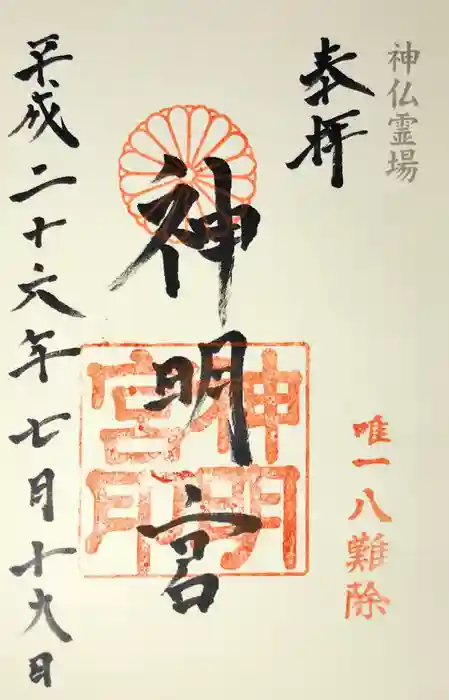 神仏霊場
奉拝
唯一八難除
神明宮
神明宮印
平成二十六年七月十九日